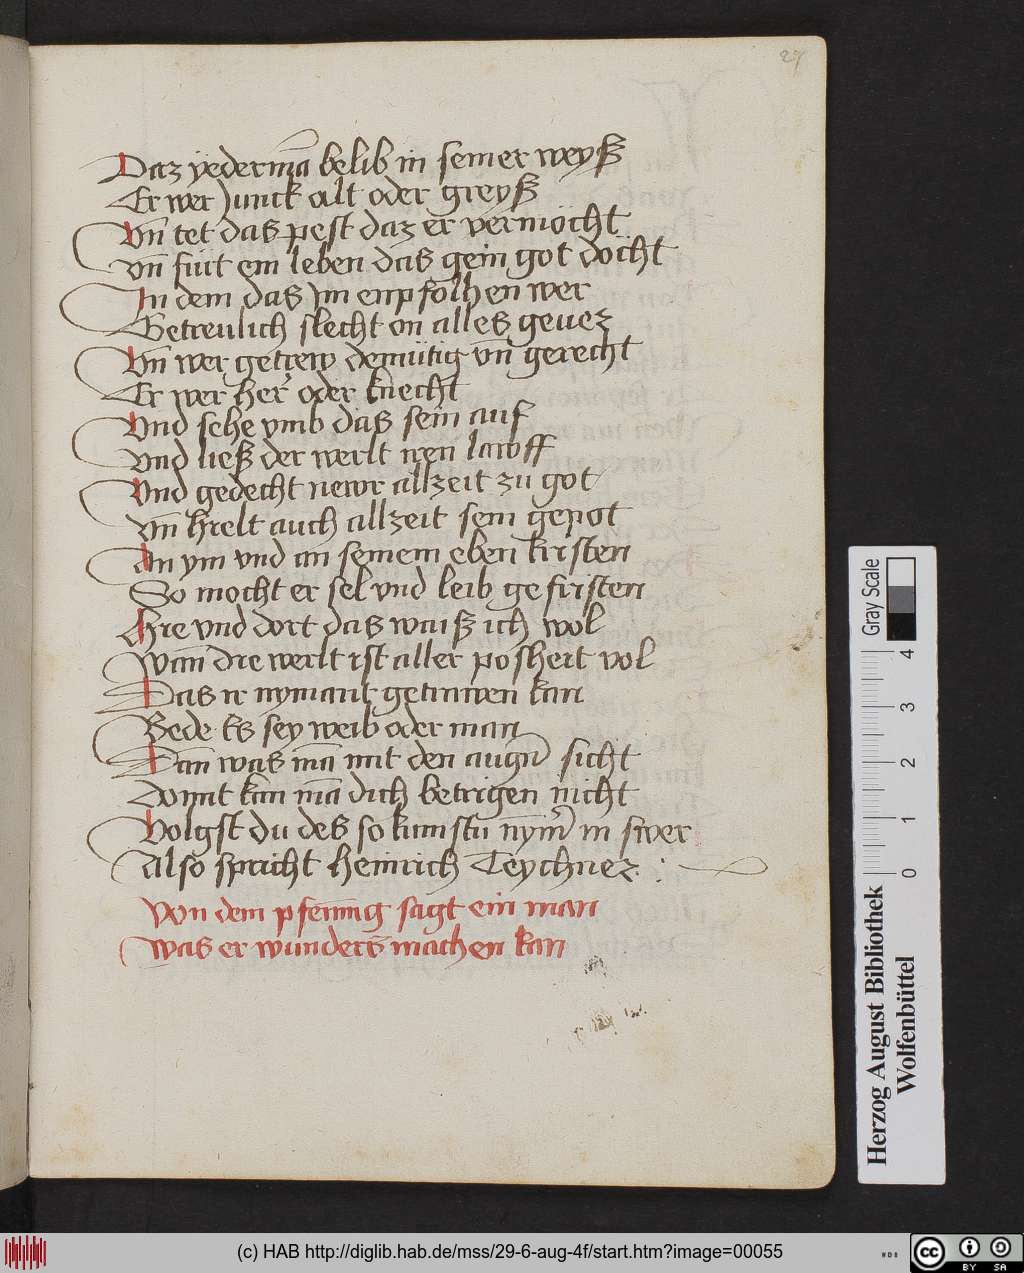 27
Daz yederma͞ belib in seiner weyß
Er wer Junck alt oder greyß
Vn͞ tet das pest daz er vermöcht
vn͞ fürt ein leben das gein got döcht
In dem das Im enpfolhen wer
Getreulich slecht on alles gevez
Vn͞ wer getrew demütig vn͞ gerecht
Er wer her͛ oder knecht
Vnd sehe vmb das sein auf
vnd ließ der werlt iren lawff
Vnd gedecht newr allzeit zu got
vn͞ hielt auch allzeit sein gepot
An ym vnd an seinem eben kristen
So mocht er sel vnd leib gefristen
Hie vnd dort das waiß ich wol
wan͞ die werlt ist aller posheit vol
Das ir nymant getrawen kan
Bede Es sey weib oder man
Dan͞ was ma͞ mit den augn͛ sicht
Domit kan ma͞ dich betrigen nicht
Volgst du des so kumstu nym͛ in swer
Also spricht Heinrich Teychner :
Von dem pfennig sagt ein man
was er wunders machen kan
Gray Scale
0 1 2 3 4
Herzog August Bibliothek
Wolfenbüttel
(c) HAB http://diglib.hab.de/mss/29-6-aug-4f/start.htm?image=00055
WDB
cc BY SA